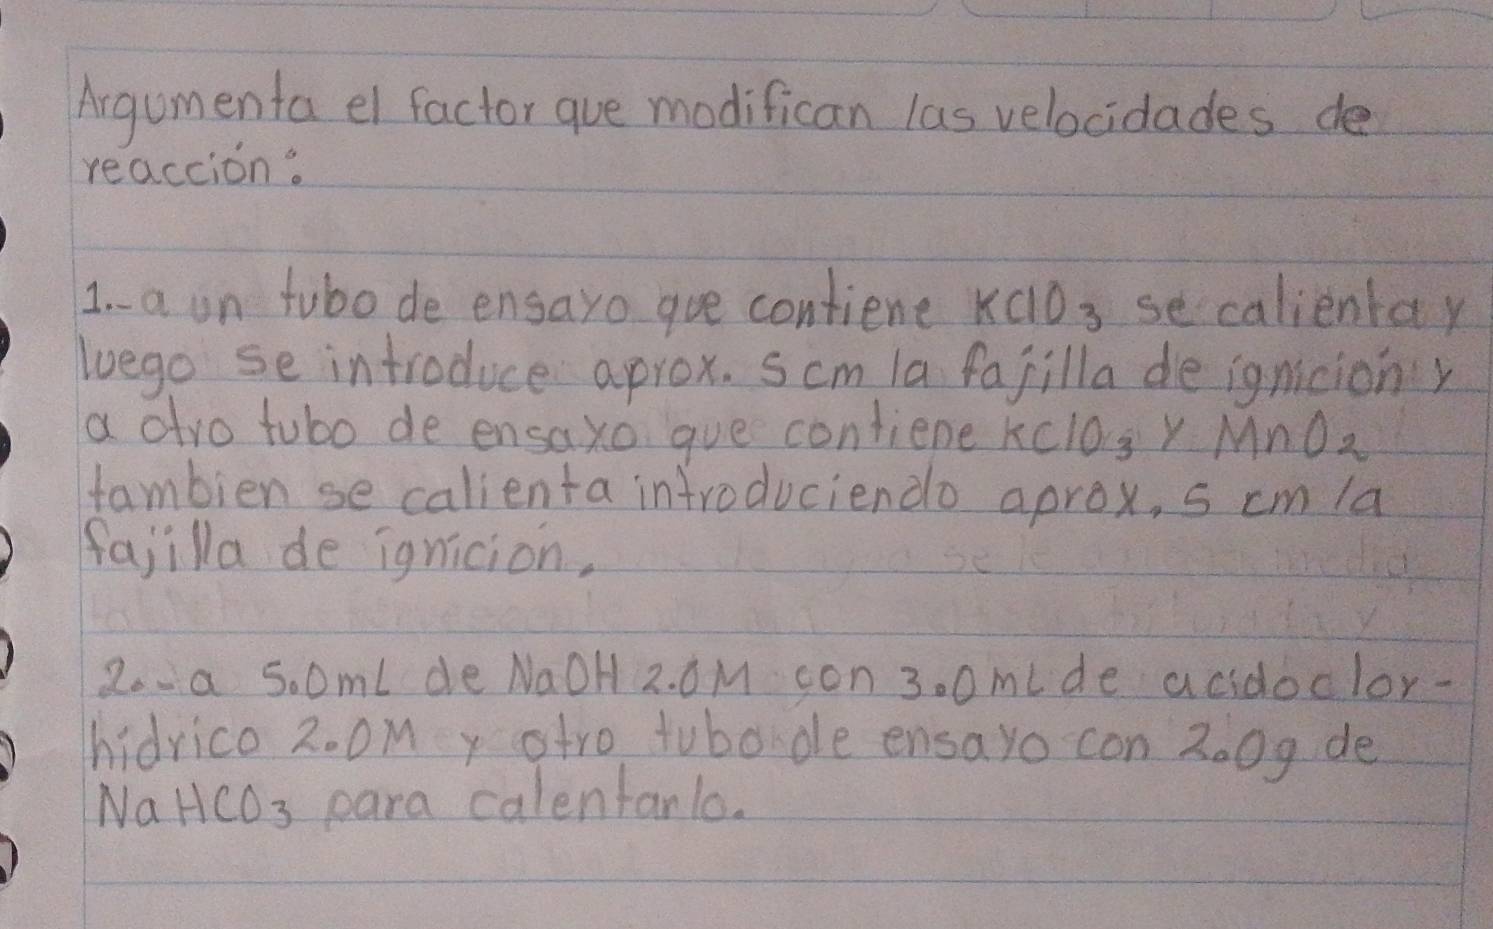 Argumenta el factor que modifican las velocidades de
reacción:
1.- a un tubo de ensayo que contiene KClO3 se calienta y
luego se introduce aprox. 5 cm la fajilla de ignición y
a otro tubo de ensayo que contiene KClO3 y MnO2
tambien se calienta introduciendo aprox. 5 cm la
fajilla de ignición.
2.- a 5.0mL de NaOH 2.0M con 3.0mL de acido clor-
hidrico 2.0M y otro tubo de ensayo con 2.0g de
NaHCO3 para calentarlo.